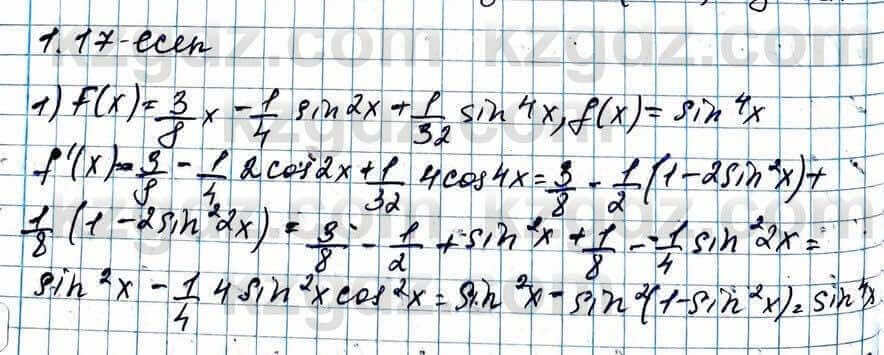 1.17-есеп
1) F(x) = 3/8 x - 1/4 sin 2x + 1/32 sin 4x, f(x) = sin⁴x
f'(x) = 3/8 - 1/4 2cos 2x + 1/32 4cos4x = 3/8 - 1/2 (1-2sin²x) +
1/8 (1-2sin²2x) = 3/8 - 1/2 + sin²x + 1/8 - 1/4 sin²2x =
sin²x - 1/4 4sin²x cos²x = sin²x - sin²(1-sin²x) = sin⁴x